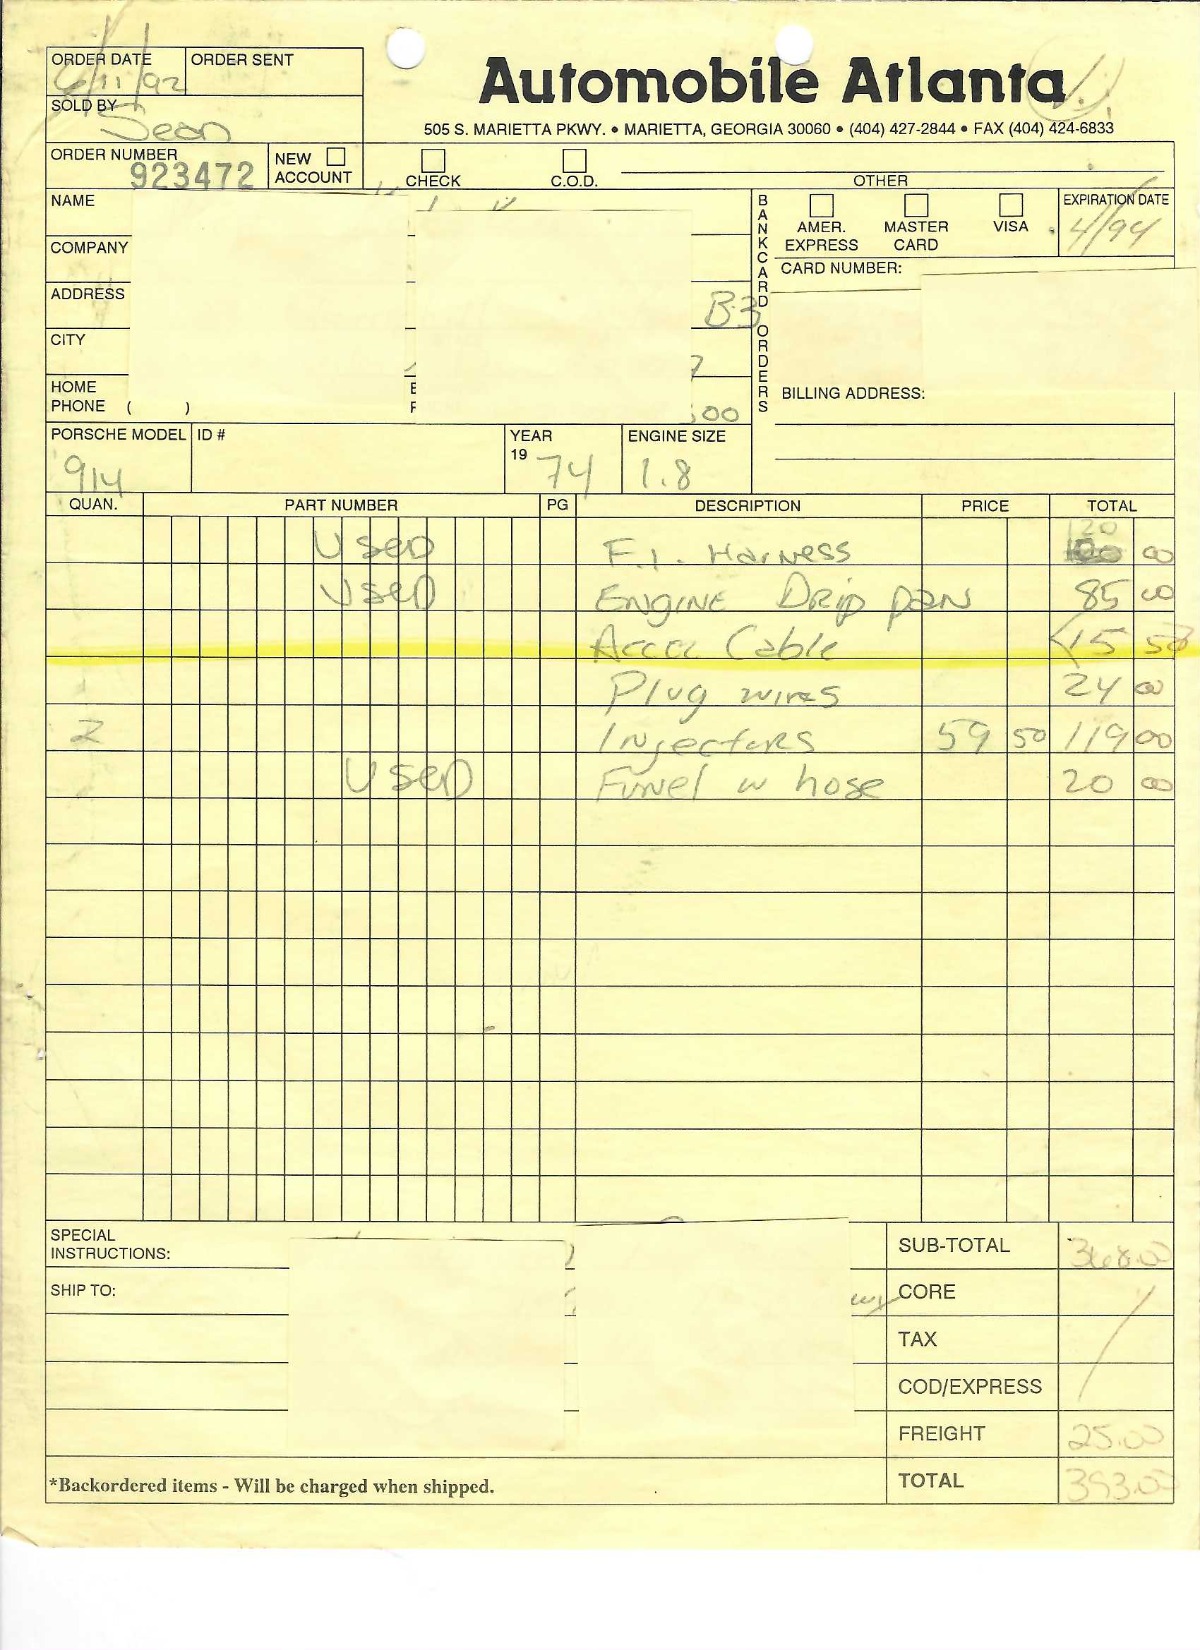 ORDER DATE ORDER SENT
6/11/92
SOLD BY
Sean
Automobile Atlanta
505 S. MARIETTA PKWY. • MARIETTA, GEORGIA 30060 • (404) 427-2844 • FAX (404) 424-6833
ORDER NUMBER
923472
NEW ACCOUNT
CHECK C.O.D. OTHER
NAME
COMPANY
ADDRESS
B3
CITY
HOME
PHONE ( )
BANKCARD ORDERS
AMER. EXPRESS MASTER CARD VISA
EXPIRATION DATE
4/94
CARD NUMBER:
BILLING ADDRESS:
PORSCHE MODEL ID # YEAR ENGINE SIZE
914 19 74 1.8
QUAN. PART NUMBER PG DESCRIPTION PRICE TOTAL
Used F.I. Harness 120 00
Used ENGINE Drip pan 85 00
Accel Cable 15 50
Plug wires 24 00
2 Injectors 59 50 119 00
Used Funnel w hose 20 00
SPECIAL
INSTRUCTIONS:
SHIP TO:
SUB-TOTAL 368.00
CORE
TAX
COD/EXPRESS
FREIGHT 25.00
TOTAL 393.00
*Backordered items - Will be charged when shipped.